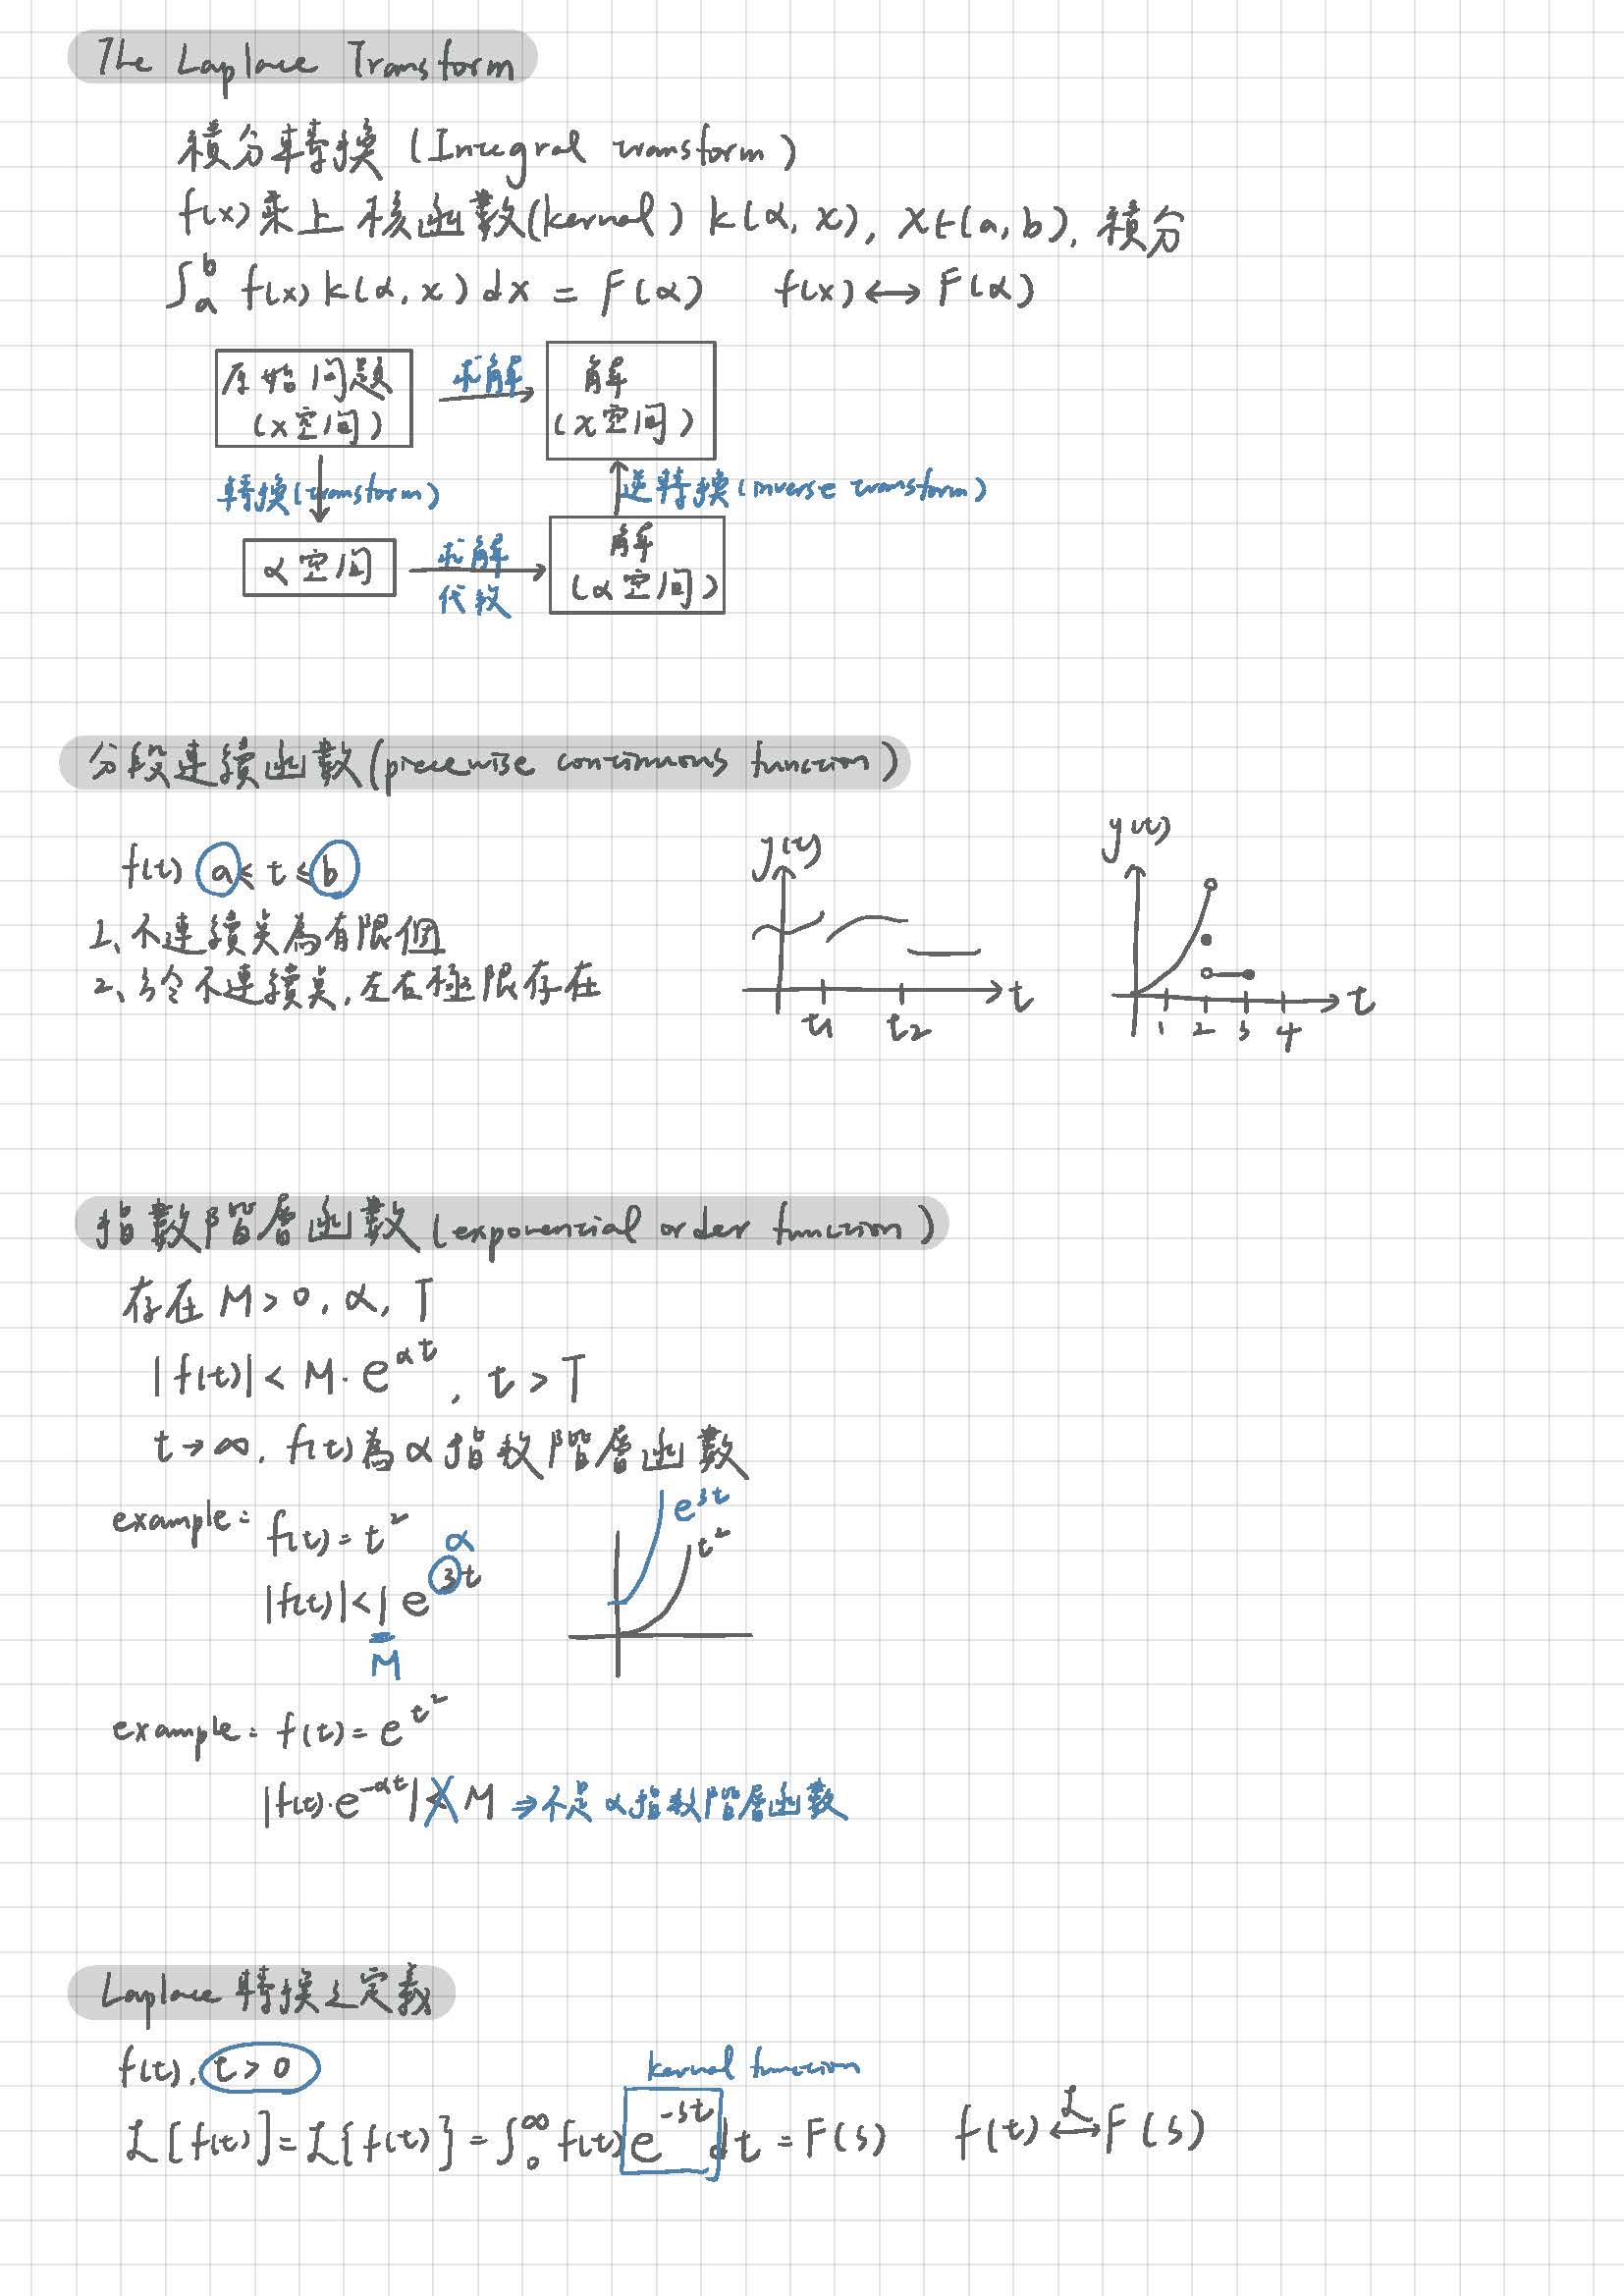 The Laplace Transform
積分轉換 (Integral transform)
f(x) 乘上 核函數(kernel) k(α, x), x∈(a, b), 積分
∫_a^b f(x) k(α, x) dx = F(α)  f(x) ↔ F(α)
原始问题 求解 解
(x空间) → (x空间)
轉換(transform) 逆轉換(inverse transform)
α空间 求解 → 解
代数 (α空间)
分段連續函數(piecewise continuous function)
f(t) a ≤ t ≤ b
1、不連續点為有限個
2、於不連續点, 左右極限存在
y(t) t t1 t2
y(t) t 1 2 3 4
指數階層函數(exponencial order function)
存在 M > 0, α, T
|f(t)| < M · e^{αt}, t > T
t → ∞, f(t) 為 α 指数階層函數
example: f(t) = t²
|f(t)| < 1 e^{3t}
α
M
e^{3t} t²
example: f(t) = e^{t²}
|f(t) · e^{-αt}| ≮ M ⇒ 不是 α 指數階層函數
Laplace 轉換之定義
f(t), t > 0
kernel function
ℒ[f(t)] = ℒ{f(t)} = ∫_0^∞ f(t) e^{-st} dt = F(s)  f(t) ↔ℒ F(s)